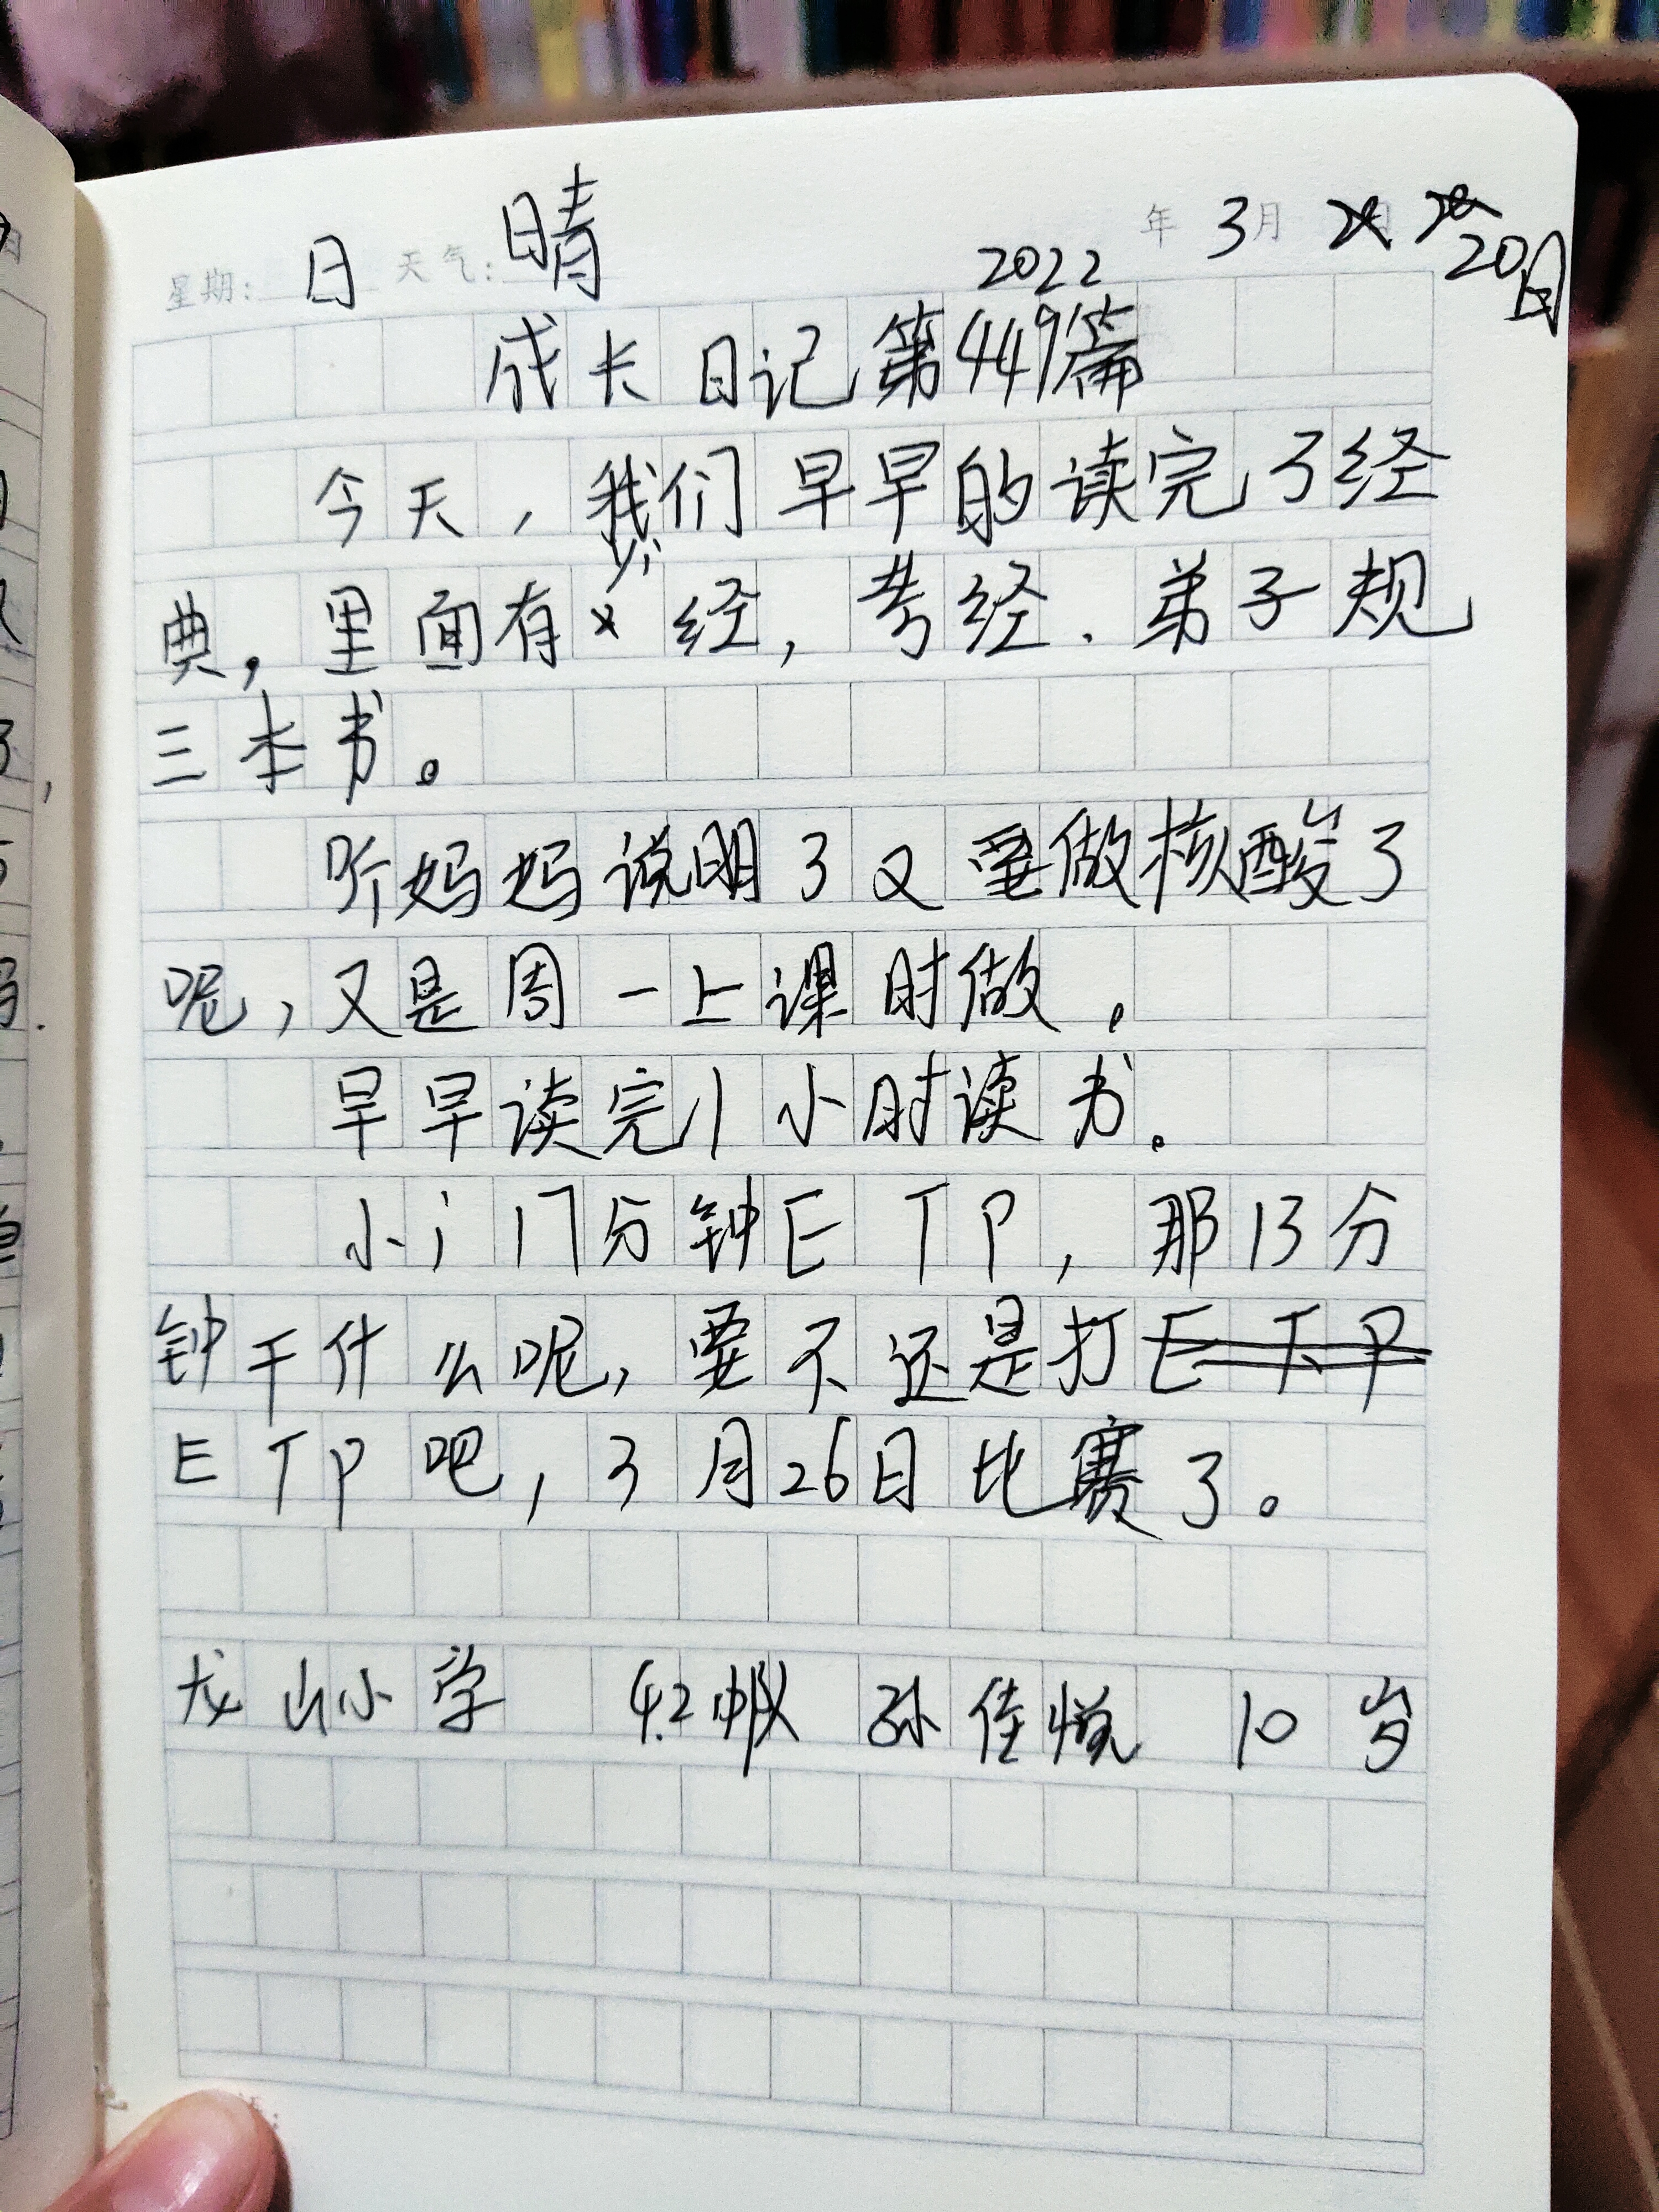 星期: 日 天气: 晴 2022 年 3月 20日
成长日记第449篇
今天,我们早早的读完了经
典,里面有心经,孝经、弟子规
三本书。
听妈妈说明了又要做核酸了
呢,又是周一上课时做。
早早读完1小时读书。
小i17分钟ETP,那13分
钟干什么呢,要不还是打
ETP吧,3月26日比赛了。
龙山小学 4.2中队 孙佳悦 10岁